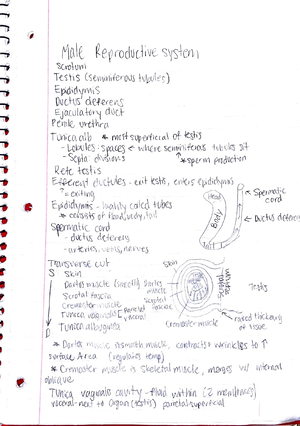 Male Reproductive system
Scrotum
Testis (Seminiferous tubules)
Epididymis
Ductus deferens
Ejaculatory duct
Penile urethra
Tunica alb * most superficial of testis
- Lobules: spaces ← where seminiferous tubules sit
- Septa: divisions * sperm production
Rete testis
Efferent ductules - exit testis, enters epididymis
↑ = exiting
Epididymis - highly coiled tubes
* consists of head, body, tail
Spermatic cord
- ductus deferens
- arteries, veins, nerves
Head
Body
tail
Spermatic cord
Ductus deferens
Transverse cut
S Skin
Dartos muscle (smooth)
Scrotal fascia
Cremaster muscle
Tunica vaginalis [Parietal
visceral
D Tunica albuginea
Skin
Dartos muscle
Scrotal fascia
Cremaster muscle
Testis
raised thickening of tissue
* Dartos muscle is smooth muscle, contracts → wrinkles to ↑
surface Area (regulates temp)
* Cremaster muscle is skeletal muscle, merges w/ internal
oblique
Tunica vaginalis cavity - fluid within (2 membranes)
visceral - next to organ (testis) parietal - superficial